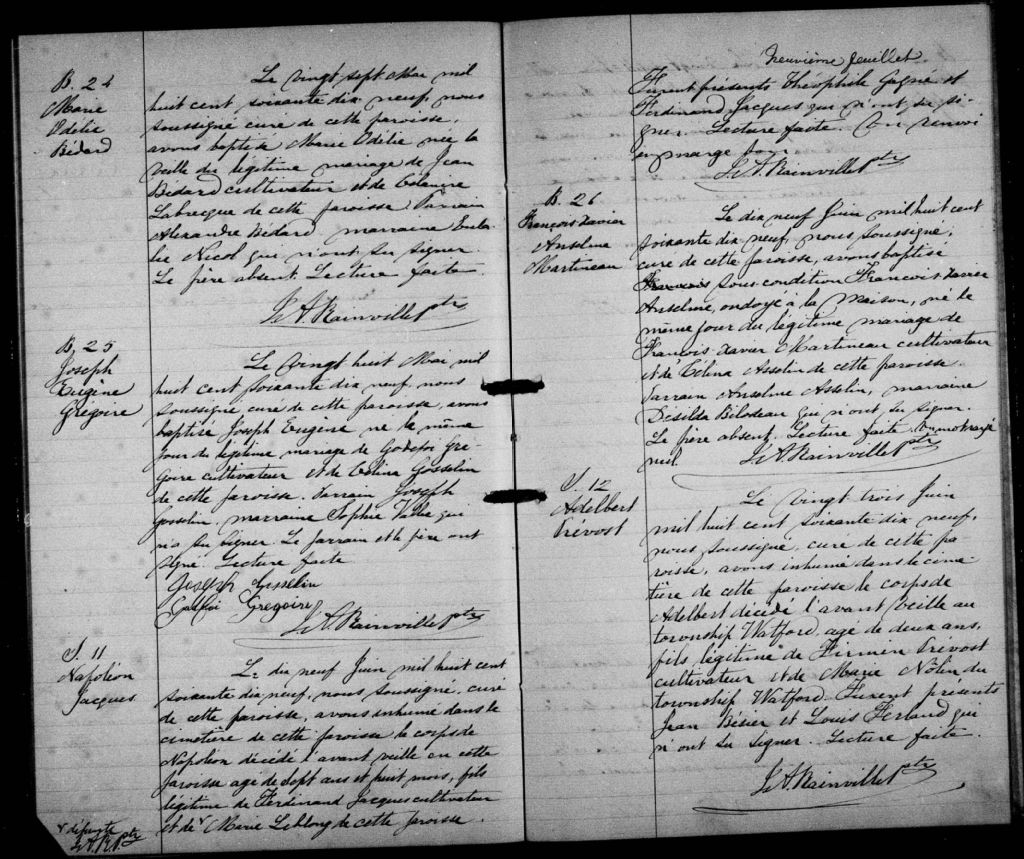 B. 24
Marie
Odélie
Bédard
Le vingt sept Mai mil
huit cent soixante dix neuf, nous
soussigné curé de cette paroisse,
avons baptisé Marie Odélie née la
veille du légitime mariage de Jean
Bédard cultivateur et de Célanire
Labrecque de cette paroisse. Parrain
Alexandre Bédard, marraine Eula-
lie Nicol qui n'ont su signer.
Le père absent. Lecture faite.
L. A. Rainville Ptr
B. 25
Joseph
Eugène
Grégoire
Le vingt huit Mai mil
huit cent soixante dix neuf, nous
soussigné curé de cette paroisse, avons
baptisé Joseph Eugene né le même
jour du légitime mariage de Gre-
goire cultivateur et de Célina Gosselin
de cette paroisse. Parrain Joseph
Gosselin, marraine Sophie qui
n'a su signer. Le parrain et le père ont
signé. Lecture faite
Joseph Gosselin
Gregoire
L. A. Rainville Ptr
S. 11
Napoléon
Jacques
Le dix neuf Juin mil huit cent
soixante dix neuf, nous soussigné, curé
de cette paroisse, avons inhumé dans le
cimetière de cette paroisse le corps de
Napoléon décédé l'avant veille en cette
paroisse agé de sept ans et huit mois, fils
légitime de Ferdinand Jacques cultivateur
et de v Marie Leblong de cette paroisse.
v défunte
L. A. R. Ptr
Neuvième feuillet
Furent présents Théophile Gagné et
Ferdinand Jacques qui n'ont su si-
gner. Lecture faite. Un renvoi
en marge bon
L. A. Rainville Ptr
B. 26
François Xavier
Anselme
Martineau
Le dix neuf Juin mil huit cent
soixante dix neuf, nous soussigné,
curé de cette paroisse, avons baptisé
sous condition François Xavier
Anselme, ondoyé à la maison, né le
même jour du légitime mariage de
François Xavier Martineau cultivateur
et de Célina Asselin de cette paroisse.
Parrain Anselme Asselin, marraine
Désilda Bilodeau qui n'ont su signer.
Le père absent. Lecture faite. Un mot rayé
nul. L. A. Rainville Ptr
S. 12
Adelbert
Prévost
Le vingt trois Juin
mil huit cent soixante dix neuf,
nous soussigné, curé de cette pa-
roisse, avons inhumé dans le cime-
tière de cette paroisse le corps de
Adelbert décédé l'avant veille au
township Watford, agé de deux ans,
fils légitime de Firmin Prévost
cultivateur et de Marie Nolin du
township Watford. Furent présents
Jean et Louis Ferland qui
n'ont su signer. Lecture faite.
L. A. Rainville Ptr